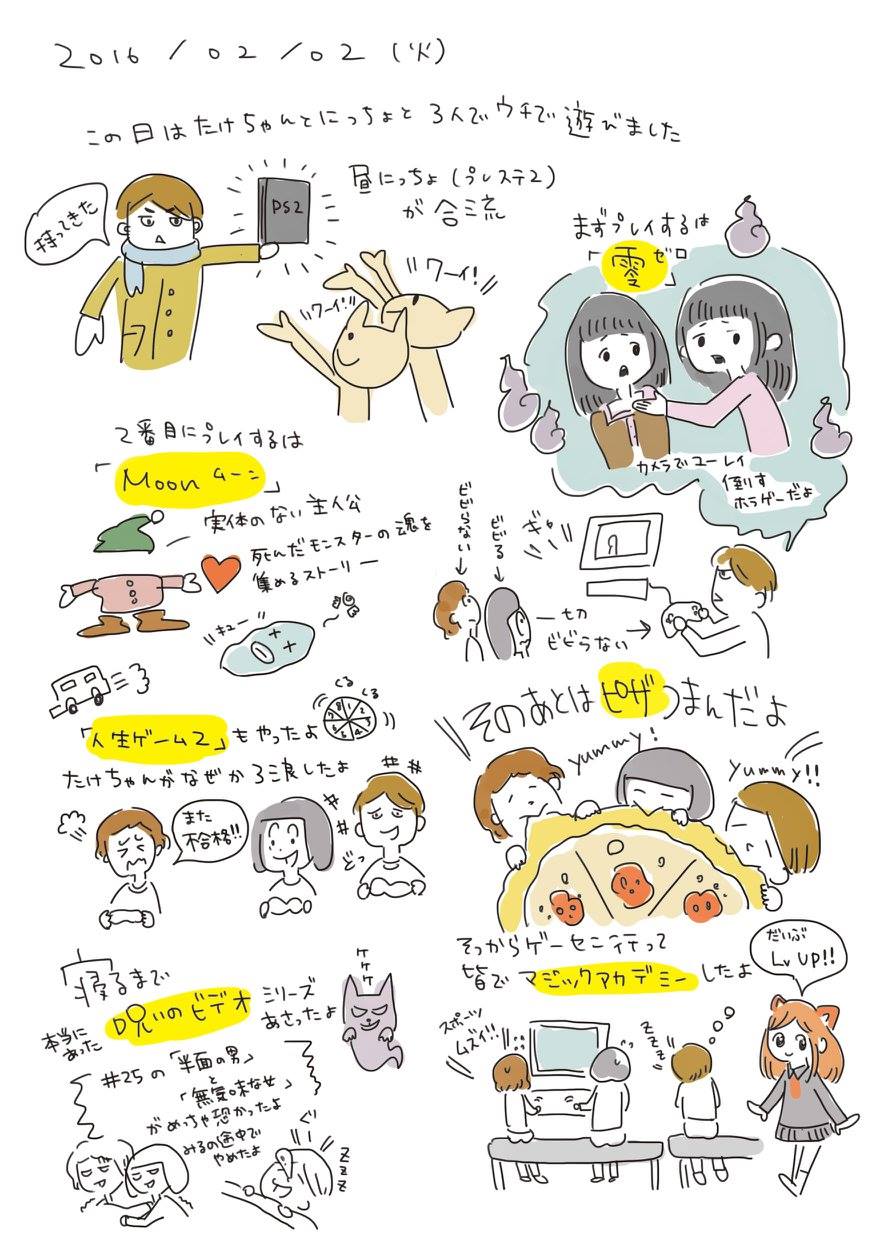 2016/02/02(火)
この日はたけちゃんとにっちょと3人でウチで遊びました
持ってきた
PS2
昼にっちょ(プレステ2)
が合流
ワーイ!
ワーイ!
まずプレイするは
「零ゼロ」
カメラでユーレイ
倒す
ホラゲーだよ
2番目にプレイするは
「Moonムーン」
実体のない主人公
死んだモンスターの魂を
集めるストーリー
キュー
ビビらない
ビビる
ギャー
一切
ビビらない
「人生ゲーム2」もやったよ
くる
くる
たけちゃんがなぜか3浪したよ
また
不合格!!
どっ
そのあとはピザつまんだよ
yummy!
yummy!!
そっからゲーセン行って
皆でマジックアカデミーしたよ
だいぶ
Lv UP!!
スポーツ
ムズイ!!
zzzz
寝るまで
本当に
あった
呪いのビデオ
シリーズ
あさったよ
ケケケ
#25の「半面の男」
と
「無気味な女」
がめっちゃ恐かったよ
みるの途中で
やめたよ
zzz